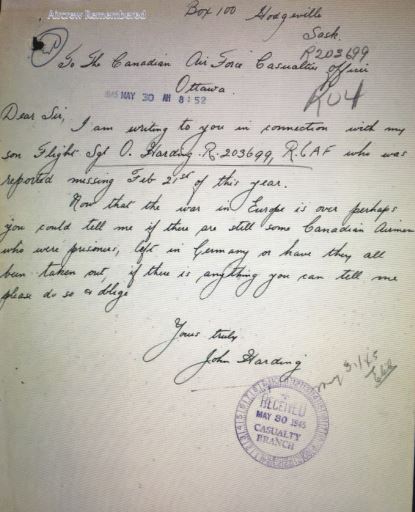 Aircrew Remembered
Box 100 Hodgeville
Sask.
R203699
To The Canadian Air Force Casualties Officer
Ottawa.
1945 MAY 30 AM 8:52
R04
Dear Sir,
I am writing to you in connection with my
son Flight Sgt O. Harding R.203699, R.C.A.F who was
reported missing Feb 21st of this year.
Now that the war in Europe is over perhaps
you could tell me if there are still some Canadian Airmen
who were prisoners, left in Germany or have they all
been taken out, if there is anything you can tell me
please do so & oblige
Yours truly
John Harding
May 31/45
RECEIVED
MAY 30 1945
CASUALTY
BRANCH